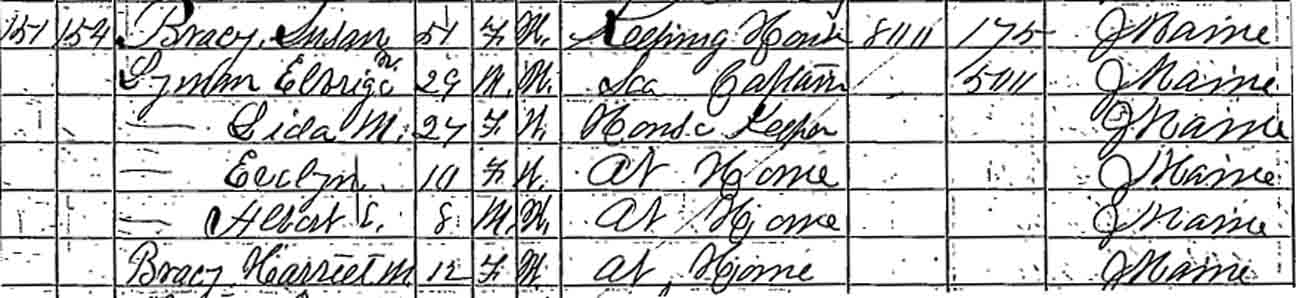 151 154 Bracy, Susan 51 F. W. Keeping House 800 175 Maine
Lyman Elbrige W. 29 M. W. Sea Captain 500 Maine
— Lida M. 27 F. W. House Keeper Maine
— Evelyn 10 F. W. At Home Maine
— Albert E. 8 M. W. At Home Maine
Bracy Harriet M. 12 F. W. At Home Maine